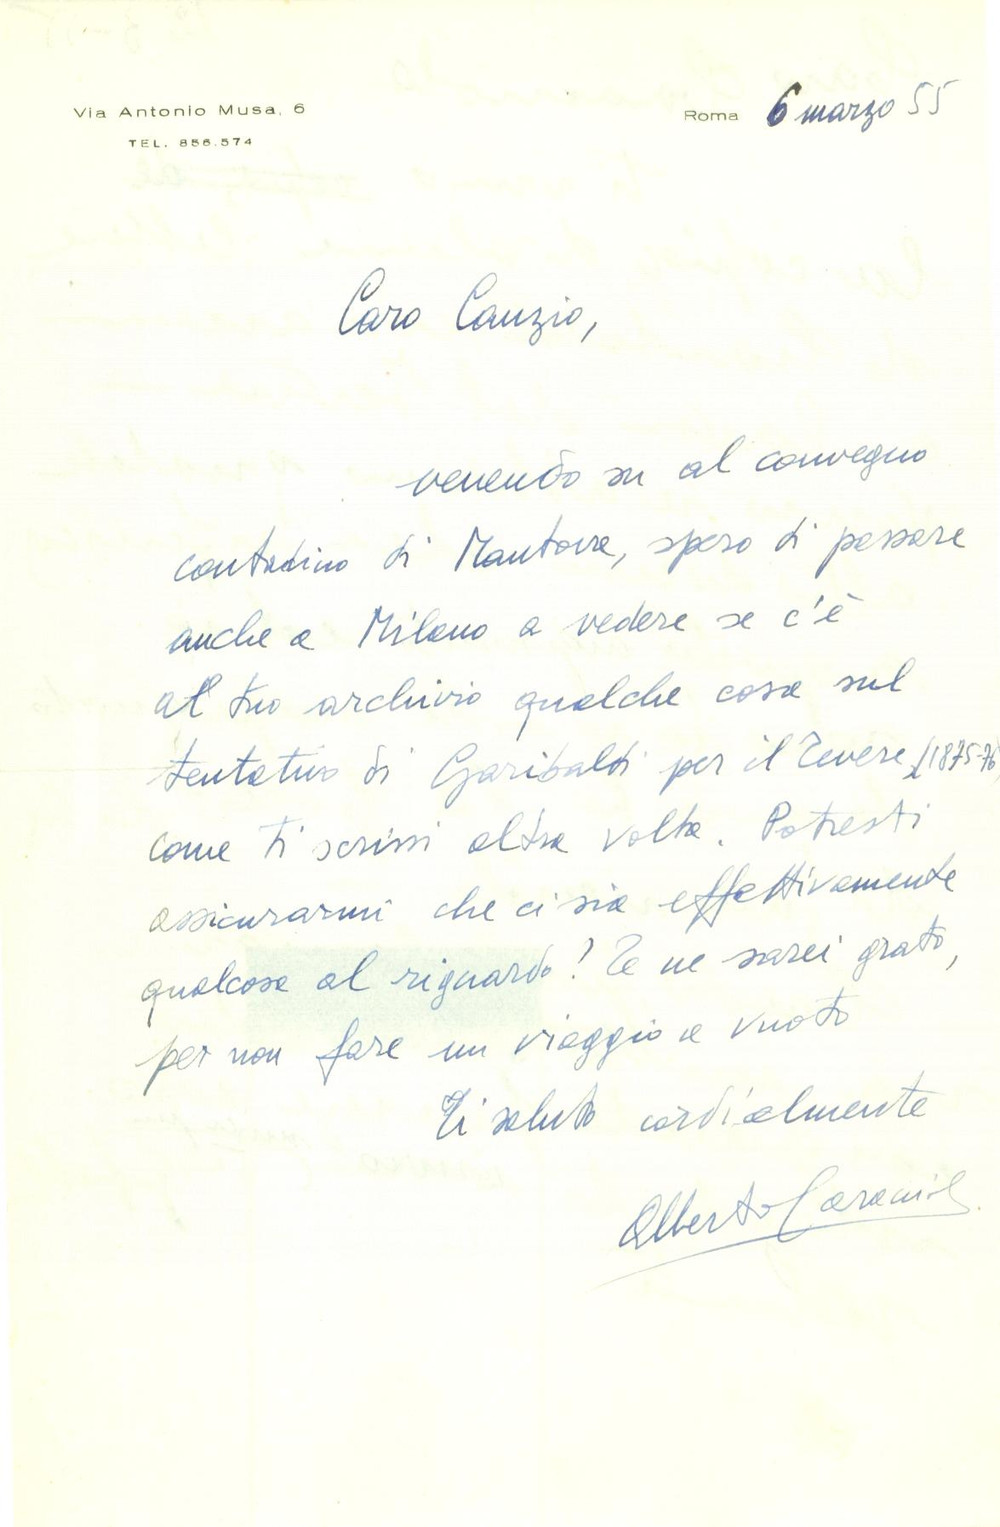 Via Antonio Musa, 6
TEL. 856.574
Roma 6 marzo 55
Caro Canzio,
venendo su al convegno
contadino di Mantova, spero di passare
anche a Milano a vedere se c'è
al tuo archivio qualche cosa sul
tentativo di Garibaldi per il Tevere (1875-76)
come ti scrissi altra volta. Potresti
assicurarmi che ci sia effettivamente
qualcosa al riguardo? Te ne sarei grato,
per non fare un viaggio a vuoto
Ti saluto cordialmente
Alberto Caracciolo